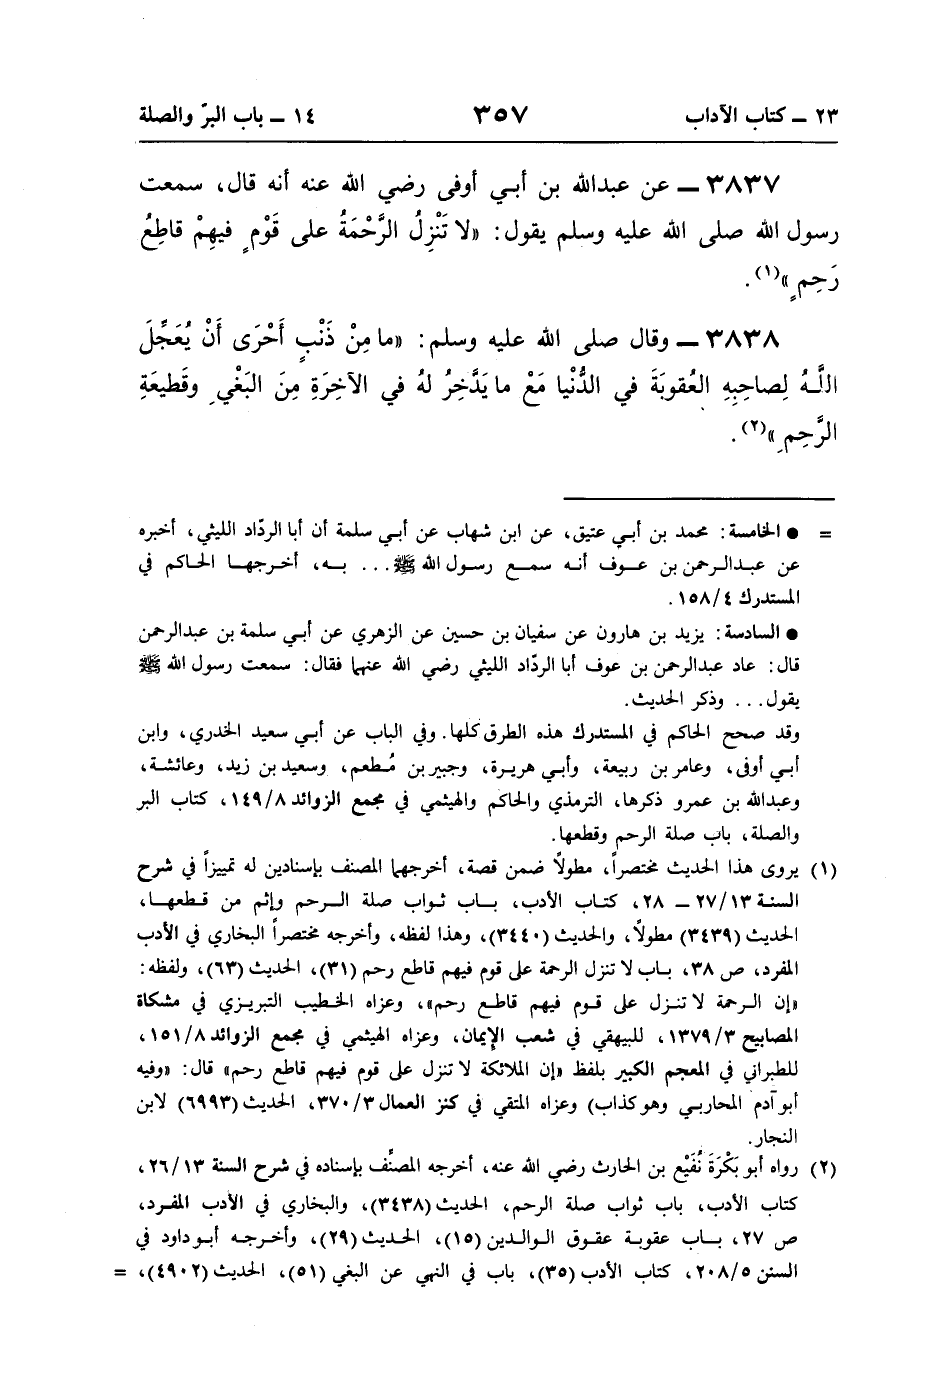 ٢٣ ــ كتاب الآداب ٣٥٧ ١٤ ــ باب البرّ والصلة
٣٨٣٧ ــ عن عبدالله بن أبي أوفى رضي الله عنه أنه قال، سمعت
رسول الله صلى الله عليه وسلم يقول: «لا تَنْزِلُ الرَّحْمَةُ على قَوْمٍ فيهِمْ قاطِعُ
رَحِمٍ»(١).
٣٨٣٨ ــ وقال صلى الله عليه وسلم: «ما مِنْ ذَنْبٍ أَحْرَى أَنْ يُعَجِّلَ
اللَّهُ لِصاحِبِهِ العُقوبَةَ في الدُّنْيا مَعْ ما يَدَّخِرُ لهُ في الآخِرَةِ مِنَ البَغْيِ وقَطيعَةِ
الرَّحِمِ»(٢).
= ● الخامسة: محمد بن أبي عتيق، عن ابن شهاب عن أبي سلمة أن أبا الردّاد الليثي، أخبره
عن عبدالرحمن بن عوف أنه سمع رسول الله ﷺ... به، أخرجها الحاكم في
المستدرك ١٥٨/٤.
● السادسة: يزيد بن هارون عن سفيان بن حسين عن الزهري عن أبي سلمة بن عبدالرحمن
قال: عاد عبدالرحمن بن عوف أبا الردّاد الليثي رضي الله عنهما فقال: سمعت رسول الله ﷺ
يقول... وذكر الحديث.
وقد صحح الحاكم في المستدرك هذه الطرق كلها. وفي الباب عن أبي سعيد الخدري، وابن
أبي أوفى، وعامر بن ربيعة، وأبي هريرة، وجبير بن مُطعم، وسعيد بن زيد، وعائشة،
وعبدالله بن عمرو ذكرها، الترمذي والحاكم والهيثمي في مجمع الزوائد ١٤٩/٨، كتاب البر
والصلة، باب صلة الرحم وقطعها.
(١) يروى هذا الحديث مختصراً، مطولاً ضمن قصة، أخرجهما المصنف بإسنادين له تمييزاً في شرح
السنة ٢٧/١٣ ــ ٢٨، كتاب الأدب، باب ثواب صلة الرحم وإثم من قطعها،
الحديث (٣٤٣٩) مطولاً، والحديث (٣٤٤٠)، وهذا لفظه، وأخرجه مختصراً البخاري في الأدب
المفرد، ص ٣٨، باب لا تنزل الرحمة على قوم فيهم قاطع رحم (٣١)، الحديث (٦٣)، ولفظه:
«إن الرحمة لا تنزل على قوم فيهم قاطع رحم»، وعزاه الخطيب التبريزي في مشكاة
المصابيح ١٣٧٩/٣، للبيهقي في شعب الإيمان، وعزاه الهيثمي في مجمع الزوائد ١٥١/٨،
للطبراني في المعجم الكبير بلفظ «إن الملائكة لا تنزل على قوم فيهم قاطع رحم» قال: «وفيه
أبو آدم المحاربي وهو كذاب) وعزاه المتقي في كنز العمال ٣٧٠/٣، الحديث (٦٩٩٣) لابن
النجار.
(٢) رواه أبو بَكْرَةَ نُفَيْع بن الحارث رضي الله عنه، أخرجه المصنِّف بإسناده في شرح السنة ٢٦/١٣،
كتاب الأدب، باب ثواب صلة الرحم، الحديث (٣٤٣٨)، والبخاري في الأدب المفرد،
ص ٢٧، باب عقوبة عقوق الوالدين (١٥)، الحديث (٢٩)، وأخرجه أبو داود في
السنن ٢٠٨/٥، كتاب الأدب (٣٥)، باب في النهي عن البغي (٥١)، الحديث (٤٩٠٢)، =